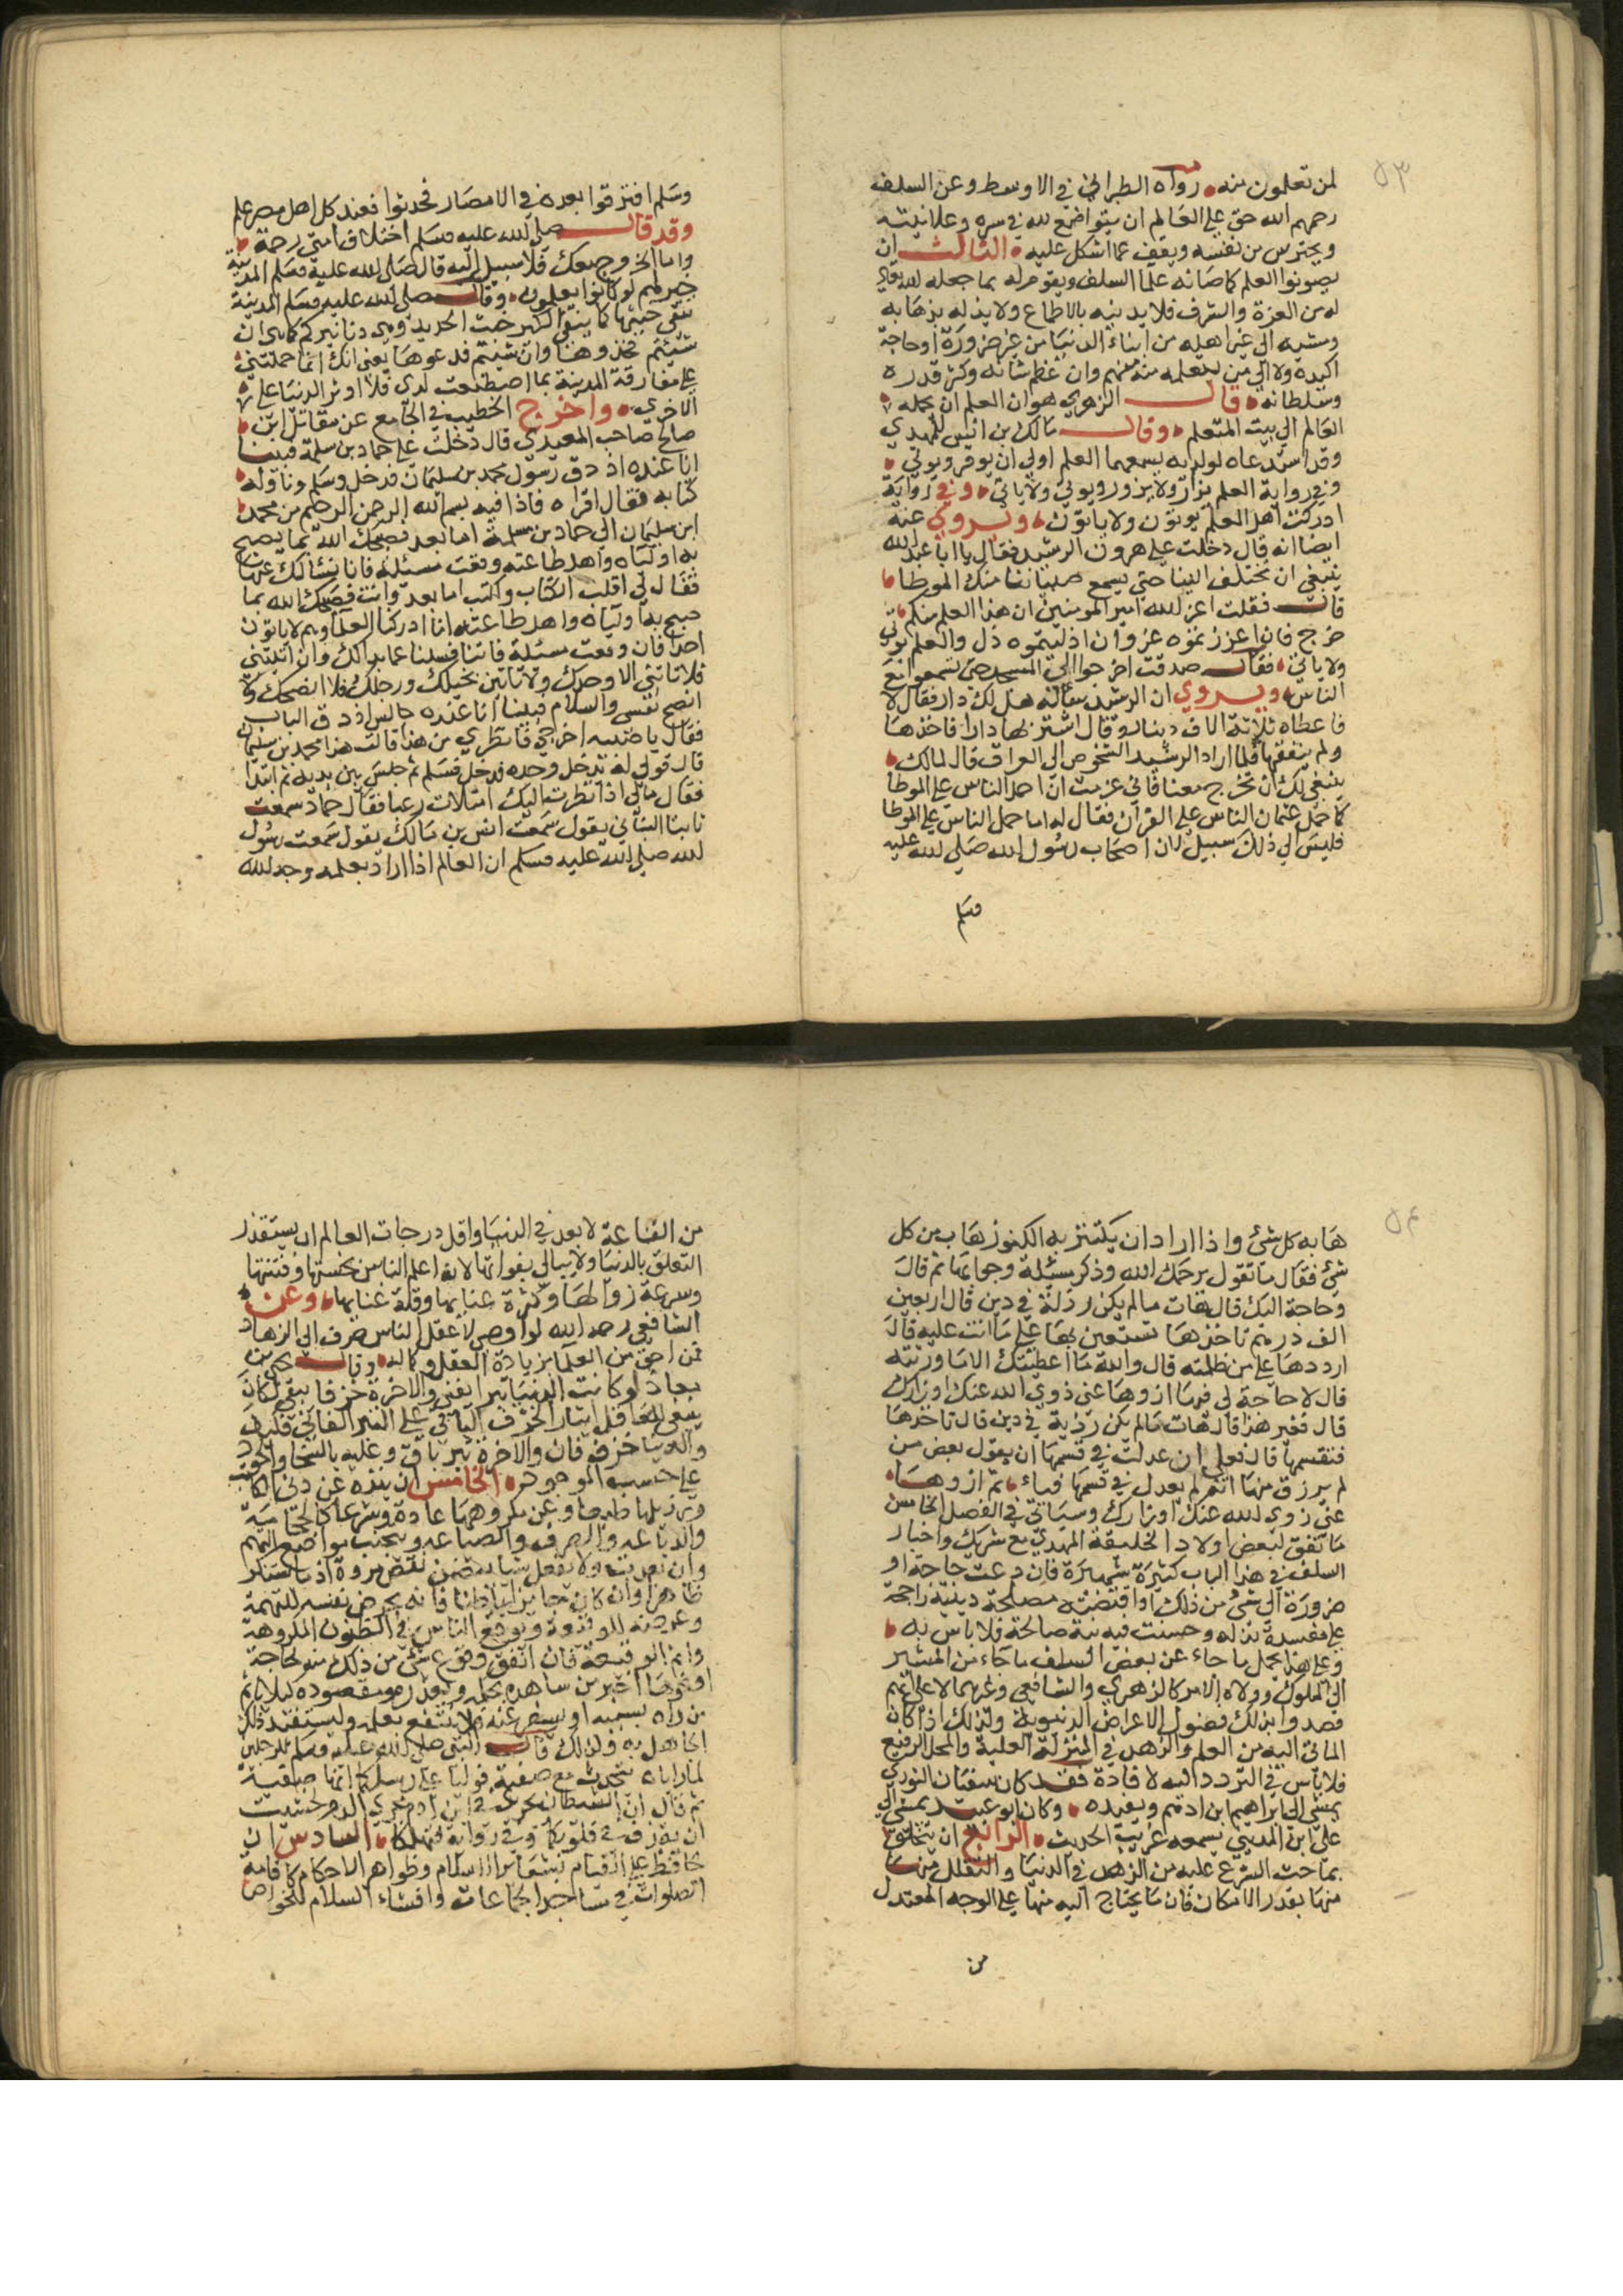 ٥٣
لمن تعلمون منه رواه الطبراني في الاوسط وعن السلف
رحمهم الله حق علي العالم ان يتواضع لله في سره وعلانيته
ويحترس من نفسه ويقف عما اشكل عليه الثالث ان
يصونوا العلم كما صانه علما السلف ويقوم له بما جعله لله تعالي
له من العزة والشرف فلا يدنيه بالاطماع ولا يذله بذهابه
ومشيه الي غير اهله من ابناء الدنيا من غير ضرورة او حاجة
اكيدة ولا الي من يتعلمه منه منهم وان عظم شانه وكثر قدره
وسلطانه قال الزهري هوان العلم ان يحمله
العالم الي بيت المتعلم وقال مالك بن انس للمهدي
وقد استدعاه لولديه يسمعهما العلم اولي ان يوقر ويوتي
وفي رواية العلم يزار ولا يزور ويوتي ولا ياتي وفي رواية
ادركت اهل العلم يوتون ولا ياتون ويروي عنه
ايضا انه قال دخلت علي هرون الرشيد فقال يا ابا عبد الله
ينبغي ان تختلف الينا حتي يسمع صبياننا منك الموطا
قال فقلت اعز الله امير المومنين ان هذا العلم منكم
خرج فان اعززتموه عز وان اذليتموه ذل والعلم يوتي
ولا ياتي فقال صدقت اخرجوا الي المسجد حتي تسمعوا مع
الناس ويروي ان الرشيد ساله هل لك دار فقال لا
فاعطاه ثلاثة الاف دينار وقال اشتر بها دارا فاخذها
ولم ينفقها فلما اراد الرشيد الشخوص الي العراق قال لمالك
ينبغي لك ان تخرج معنا فاني عزمت ان احمل الناس علي الموطا
كما حمل عثمان الناس علي القران فقال له اما حمل الناس علي الموطا
فليس الي ذلك سبيل لان اصحاب رسول الله صلي لله عليه
وسلم
وسلم افترقوا بعده في الامصار فحدثوا فعند كل اهل مصر علم
وقد قال صلي لله عليه وسلم اختلاف امتي رحمة
واما الخروج معك فلا سبيل اليه قال صلي الله عليه وسلم المدينة
خير لهم لو كانوا يعلمون وقال صلي لله عليه وسلم المدينة
تنفي خبثها كما ينفي الكير خبث الحديد وهي دنانيركم كما هي ان
شئتم فخذوها وان شئتم فدعوها يعني انك انما حملتني
علي مفارقة المدينة بما اصطنعت لدي فلا اوثر الدنيا علي
الاخري واخرج الخطيب في الجامع عن مقاتل ابن
صالح صاحب المعيدي قال دخلت علي حماد بن سلمة فبينما
انا عنده اذ دق رسول محمد بن سليمان فدخل وسلم وناوله
كتابه فقال اقراه فاذا فيه بسم الله الرحمن الرحيم من محمد
ابن سليمان الي حماد بن سلمة اما بعد فصبحك الله بما يصبح
به اولياه واهل طاعته وقعت مسئلة فاتنا نسالك عنها
فقال لي اقلب الكتاب واكتب اما بعد وانت فصبحك الله بما
صبح به اولياه واهل طاعته انا ادركنا العلما وهم لا ياتون
احدا فان وقعت مسئلة فاتنا فسلنا عما بدا لك وان اتيتني
فلا تاتني الا وحدك ولا تاتين بخيلك ورجلك فلا انصحك ولا
انصح نفسي والسلام فبينا انا عنده جالس اذ دق الباب
فقال يا صبيه اخرجي فانظري من هذا قالت هذا محمد بن سليمان
قال قولي له تدخل وحده فدخل فسلم ثم جلس بين يديه ثم ابتدا
فقال مالي اذا نظرت اليك امتلات رعبا فقال حماد سمعت
ثابتا البناني يقول سمعت انس بن مالك يقول سمعت رسول
لله صلي الله عليه وسلم ان العالم اذا اراد بعلمه وجه لله
٥٤
هابه كل شئ واذا اراد ان يكتنز به الكنوز هاب من كل
شئ فقال ما تقول يرحمك الله وذكر مسئلة وجوابها ثم قال
وحاجة اليك قال هات مالم يكن رذلة في دين قال اربعين
الف درهم تاخذها تستعين بها علي ما انت عليه قال
ارددها علي من ظلمته قال والله ما اعطيتك الا ما ورثته
قال لا حاجة لي فيها ازوها عني ذوي الله عنك اوزارك
قال فغير هذا قال هات مالم يكن رذية في دين قال تاخذها
فتقسمها قال فعلي ان عدلت في قسمها ان يقول بعض من
لم يرزق منها انه لم يعدل في قسمها فياء ثم ازوها
عني زوي لله عنك اوزارك وسياتي في الفصل الخامس
ما تفق لبعض اولاد الخليفة المهدي مع شريك واخبار
السلف في هذا الباب كثيرة شهيرة فان دعت حاجة او
ضرورة الي شئ من ذلك او اقتضته مصلحة دينية راجحة
علي مفسدة بذله وحسنت فيه نية صالحة فلا باس به
وعلي هذا يحمل ما جاء عن بعض السلف ما جاء من المشي الي
الي الملوك وولاه الامر كالزهري والشافعي وغيرهما لا علي انهم
قصدوا بذلك فضول الاعراض الدنيوية ولذلك اذا كان
الماتي اليه من العلم والزهد في المنزلة العلية والمحل الرفيع
فلا باس في التردد اليه لافادة فقد كان سفيان الثوري
يمشي الي ابراهيم ابن ادهم ويفيده وكان ابو عبيد يمشي الي
علي ابن المديني يسمعه غريب الحديث الرابع ان يتخلق
بما حث الشرع عليه من الزهد في الدنيا والتقلل منها
منها بقدر الامكان فان ما يحتاج اليه منها علي الوجه المعتدل
من
من القناعة لا يعد في الدنيا واقل درجات العالم ان يستقذر
التعلق بالدنيا ولا يبالي بفواتها لانه اعلم الناس بخستها وفتنتها
وسرعة زوالها وكثرة عنايها وقلة غنايها وعن
الشافعي رحمه الله لو اوصي لا عقل الناس صرف الي الزهاد
فمن احق من العلما بزيادة العقل وكماله وقال يحيي بن
معاذ لو كانت الدنيا تبرا يفني والاخرة خزفا يبقي لكان
ينبغي للعاقل ايثار الخزف الباقي علي التبر الفاني فكيف
والدنيا خزف فان والاخرة تبر باق وعليه بالسخا والجود
علي حسب الموجود الخامس ان يتنزه عن دني المكاسب
ورذيلها طبعا وعن مكروهها عادة وشرعا كالحجامية
والدباغه والصرف والصياغه ويجتنب مواضع التهم
وان بعدت ولا يفعل شيا يتضمن نقص مروة او ما يستنكر
ظاهرا وان كان جايزا باطنا فانه يعرض نفسه للتهمة
وعرضه للوقيعة ويوقع الناس في الظنون المكروهة
واثم الوقيعة فان اتفق وقوع شئ من ذلك منه لحاجة
او نحوها اخبر من شاهده بحكمه وبعذره ومقصوده كيلا ياثم
من راه بسببه او ينفر عنه فلا ينتفع بعلمه وليستفيد ذلك
الجاهل به ولذلك قال النبي صلي الله عليه وسلم للرجلين
لما راياه يتحدث مع صفية فوليا علي رسلكما انها صفية
ثم قال ان الشيطان يجري في ابن ادم مجري الدم فخشيت
ان يقذف في قلوبكما وفي رواية فتهلكا السادس ان
يحافظ علي القيام بشعاير الاسلام وظواهر الاحكام كاقامة
الصلوات في مساجد الجماعات وافشاء السلام للخواص